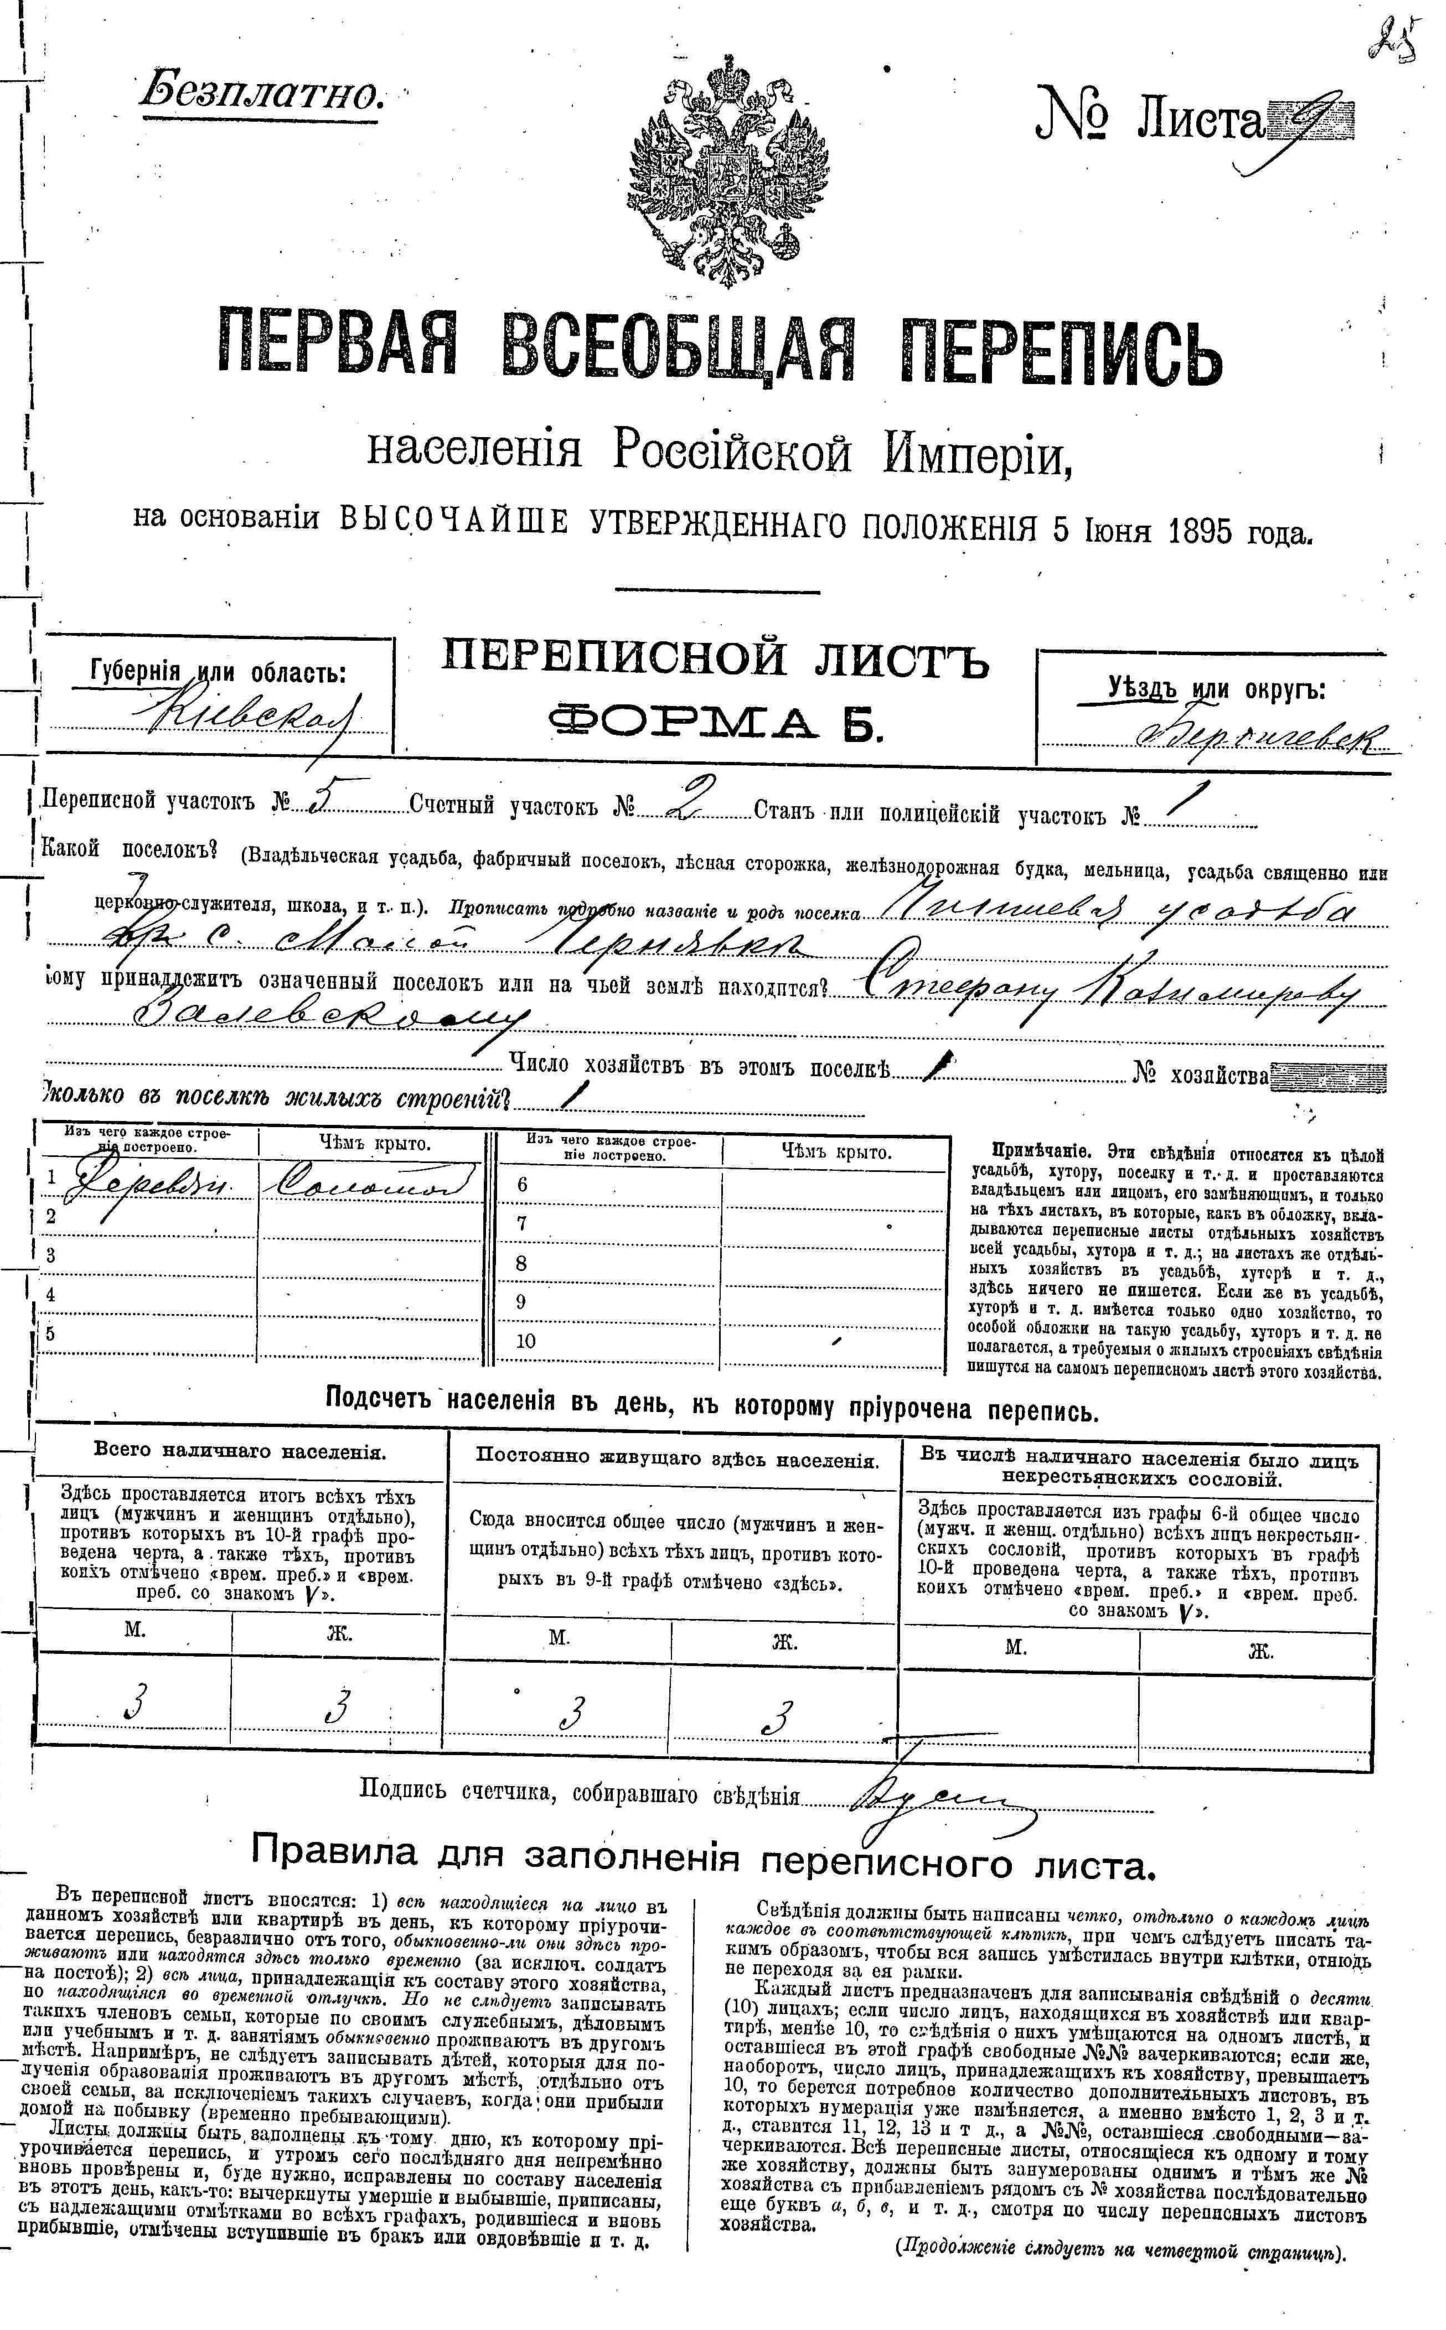 25
Безплатно.
№ Листа 9
ПЕРВАЯ ВСЕОБЩАЯ ПЕРЕПИСЬ
населенія Россійской Имперіи,
на основаніи ВЫСОЧАЙШЕ УТВЕРЖДЕННАГО ПОЛОЖЕНІЯ 5 Іюня 1895 года.
Губернія или область:
Кіевская
ПЕРЕПИСНОЙ ЛИСТЪ
ФОРМА Б.
Уѣздъ или округъ:
Бердичевск
Переписной участокъ № 5 Счетный участокъ № 2 Станъ или полицейскій участокъ № 1
Какой поселокъ? (Владѣльческая усадьба, фабричный поселокъ, лѣсная сторожка, желѣзнодорожная будка, мельница, усадьба священно или
церковно-служителя, школа, и т. п.). Прописать подробно названіе и родъ поселка усадьба
с. Малой Чернявкѣ
кому принадлежитъ означенный поселокъ или на чьей землѣ находится? Стефану Казимирову
Залевскому
Число хозяйствъ въ этомъ поселкѣ 1 № хозяйства
Сколько въ поселкѣ жилыхъ строеній? 1
Изъ чего каждое строе-
ніе построено.
Чѣмъ крыто.
Изъ чего каждое строе-
ніе построено.
Чѣмъ крыто.
1 Деревян. Соломой 6
2 7
3 8
4 9
5 10
Примѣчаніе. Эти свѣдѣнія относятся къ цѣлой
усадьбѣ, хутору, поселку и т. д. и проставляются
владѣльцемъ или лицомъ, его замѣняющимъ, и только
на тѣхъ листахъ, въ которые, какъ въ обложку, вкла-
дываются переписные листы отдѣльныхъ хозяйствъ
всей усадьбы, хутора и т. д.; на листахъ же отдѣль-
ныхъ хозяйствъ въ усадьбѣ, хуторѣ и т. д.,
здѣсь ничего не пишется. Если же въ усадьбѣ,
хуторѣ и т. д. имѣется только одно хозяйство, то
особой обложки на такую усадьбу, хуторъ и т. д. не
полагается, а требуемыя о жилыхъ строеніяхъ свѣдѣнія
пишутся на самомъ переписномъ листѣ этого хозяйства.
Подсчетъ населенія въ день, къ которому пріурочена перепись.
Всего наличнаго населенія.
Здѣсь проставляется итогъ всѣхъ тѣхъ
лицъ (мужчинъ и женщинъ отдѣльно),
противъ которыхъ въ 10-й графѣ про-
ведена черта, а также тѣхъ, противъ
коихъ отмѣчено «врем. преб.» и «врем.
преб. со знакомъ V».
Постоянно живущаго здѣсь населенія.
Сюда вносится общее число (мужчинъ и жен-
щинъ отдѣльно) всѣхъ тѣхъ лицъ, противъ кото-
рыхъ въ 9-й графѣ отмѣчено «здѣсь».
Въ числѣ наличнаго населенія было лицъ
некрестьянскихъ сословій.
Здѣсь проставляется изъ графы 6-й общее число
(мужч. и женщ. отдѣльно) всѣхъ лицъ некрестьян-
скихъ сословій, противъ которыхъ въ графѣ
10-й проведена черта, а также тѣхъ, противъ
коихъ отмѣчено «врем. преб.» и «врем. преб.
со знакомъ V».
М. Ж. М. Ж. М. Ж.
3 3 3 3
Подпись счетчика, собиравшаго свѣдѣнія
Правила для заполненія переписного листа.
Въ переписной листъ вносятся: 1) всѣ находящіеся на лицо въ
данномъ хозяйствѣ или квартирѣ въ день, къ которому пріурочи-
вается перепись, безразлично отъ того, обыкновенно-ли они здѣсь про-
живаютъ или находятся здѣсь только временно (за исключ. солдатъ
на постоѣ); 2) всѣ лица, принадлежащія къ составу этого хозяйства,
но находящіяся во временной отлучкѣ. Но не слѣдуетъ записывать
такихъ членовъ семьи, которые по своимъ служебнымъ, дѣловымъ
или учебнымъ и т. д. занятіямъ обыкновенно проживаютъ въ другомъ
мѣстѣ. Напримѣръ, не слѣдуетъ записывать дѣтей, которыя для по-
лученія образованія проживаютъ въ другомъ мѣстѣ, отдѣльно отъ
своей семьи, за исключеніемъ такихъ случаевъ, когда они прибыли
домой на побывку (временно пребывающими).
Листы должны быть заполнены къ тому дню, къ которому прі-
урочивается перепись, и утромъ сего послѣдняго дня непремѣнно
вновь провѣрены и, буде нужно, исправлены по составу населенія
въ этотъ день, какъ-то: вычеркнуты умершіе и выбывшіе, приписаны,
съ надлежащими отмѣтками во всѣхъ графахъ, родившіеся и вновь
прибывшіе, отмѣчены вступившіе въ бракъ или овдовѣвшіе и т. д.
Свѣдѣнія должны быть написаны четко, отдѣльно о каждомъ лицѣ
каждое въ соотвѣтствующей клѣткѣ, при чемъ слѣдуетъ писать та-
кимъ образомъ, чтобы вся запись умѣстилась внутри клѣтки, отнюдь
не переходя за ея рамки.
Каждый листъ предназначенъ для записыванія свѣдѣній о десяти
(10) лицахъ; если число лицъ, находящихся въ хозяйствѣ или квар-
тирѣ, менѣе 10, то свѣдѣнія о нихъ умѣщаются на одномъ листѣ, и
оставшіеся въ этой графѣ свободные №№ зачеркиваются; если же,
наоборотъ, число лицъ, принадлежащихъ къ хозяйству, превышаетъ
10, то берется потребное количество дополнительныхъ листовъ, въ
которыхъ нумерація уже измѣняется, а именно вмѣсто 1, 2, 3 и т.
д., ставится 11, 12, 13 и т д., а №№, оставшіеся свободными—за-
черкиваются. Всѣ переписные листы, относящіеся къ одному и тому
же хозяйству, должны быть занумерованы однимъ и тѣмъ же №
хозяйства съ прибавленіемъ рядомъ съ № хозяйства послѣдовательно
еще буквъ а, б, в, и т. д., смотря по числу переписныхъ листовъ
хозяйства.
(Продолженіе слѣдуетъ на четвертой страницѣ).